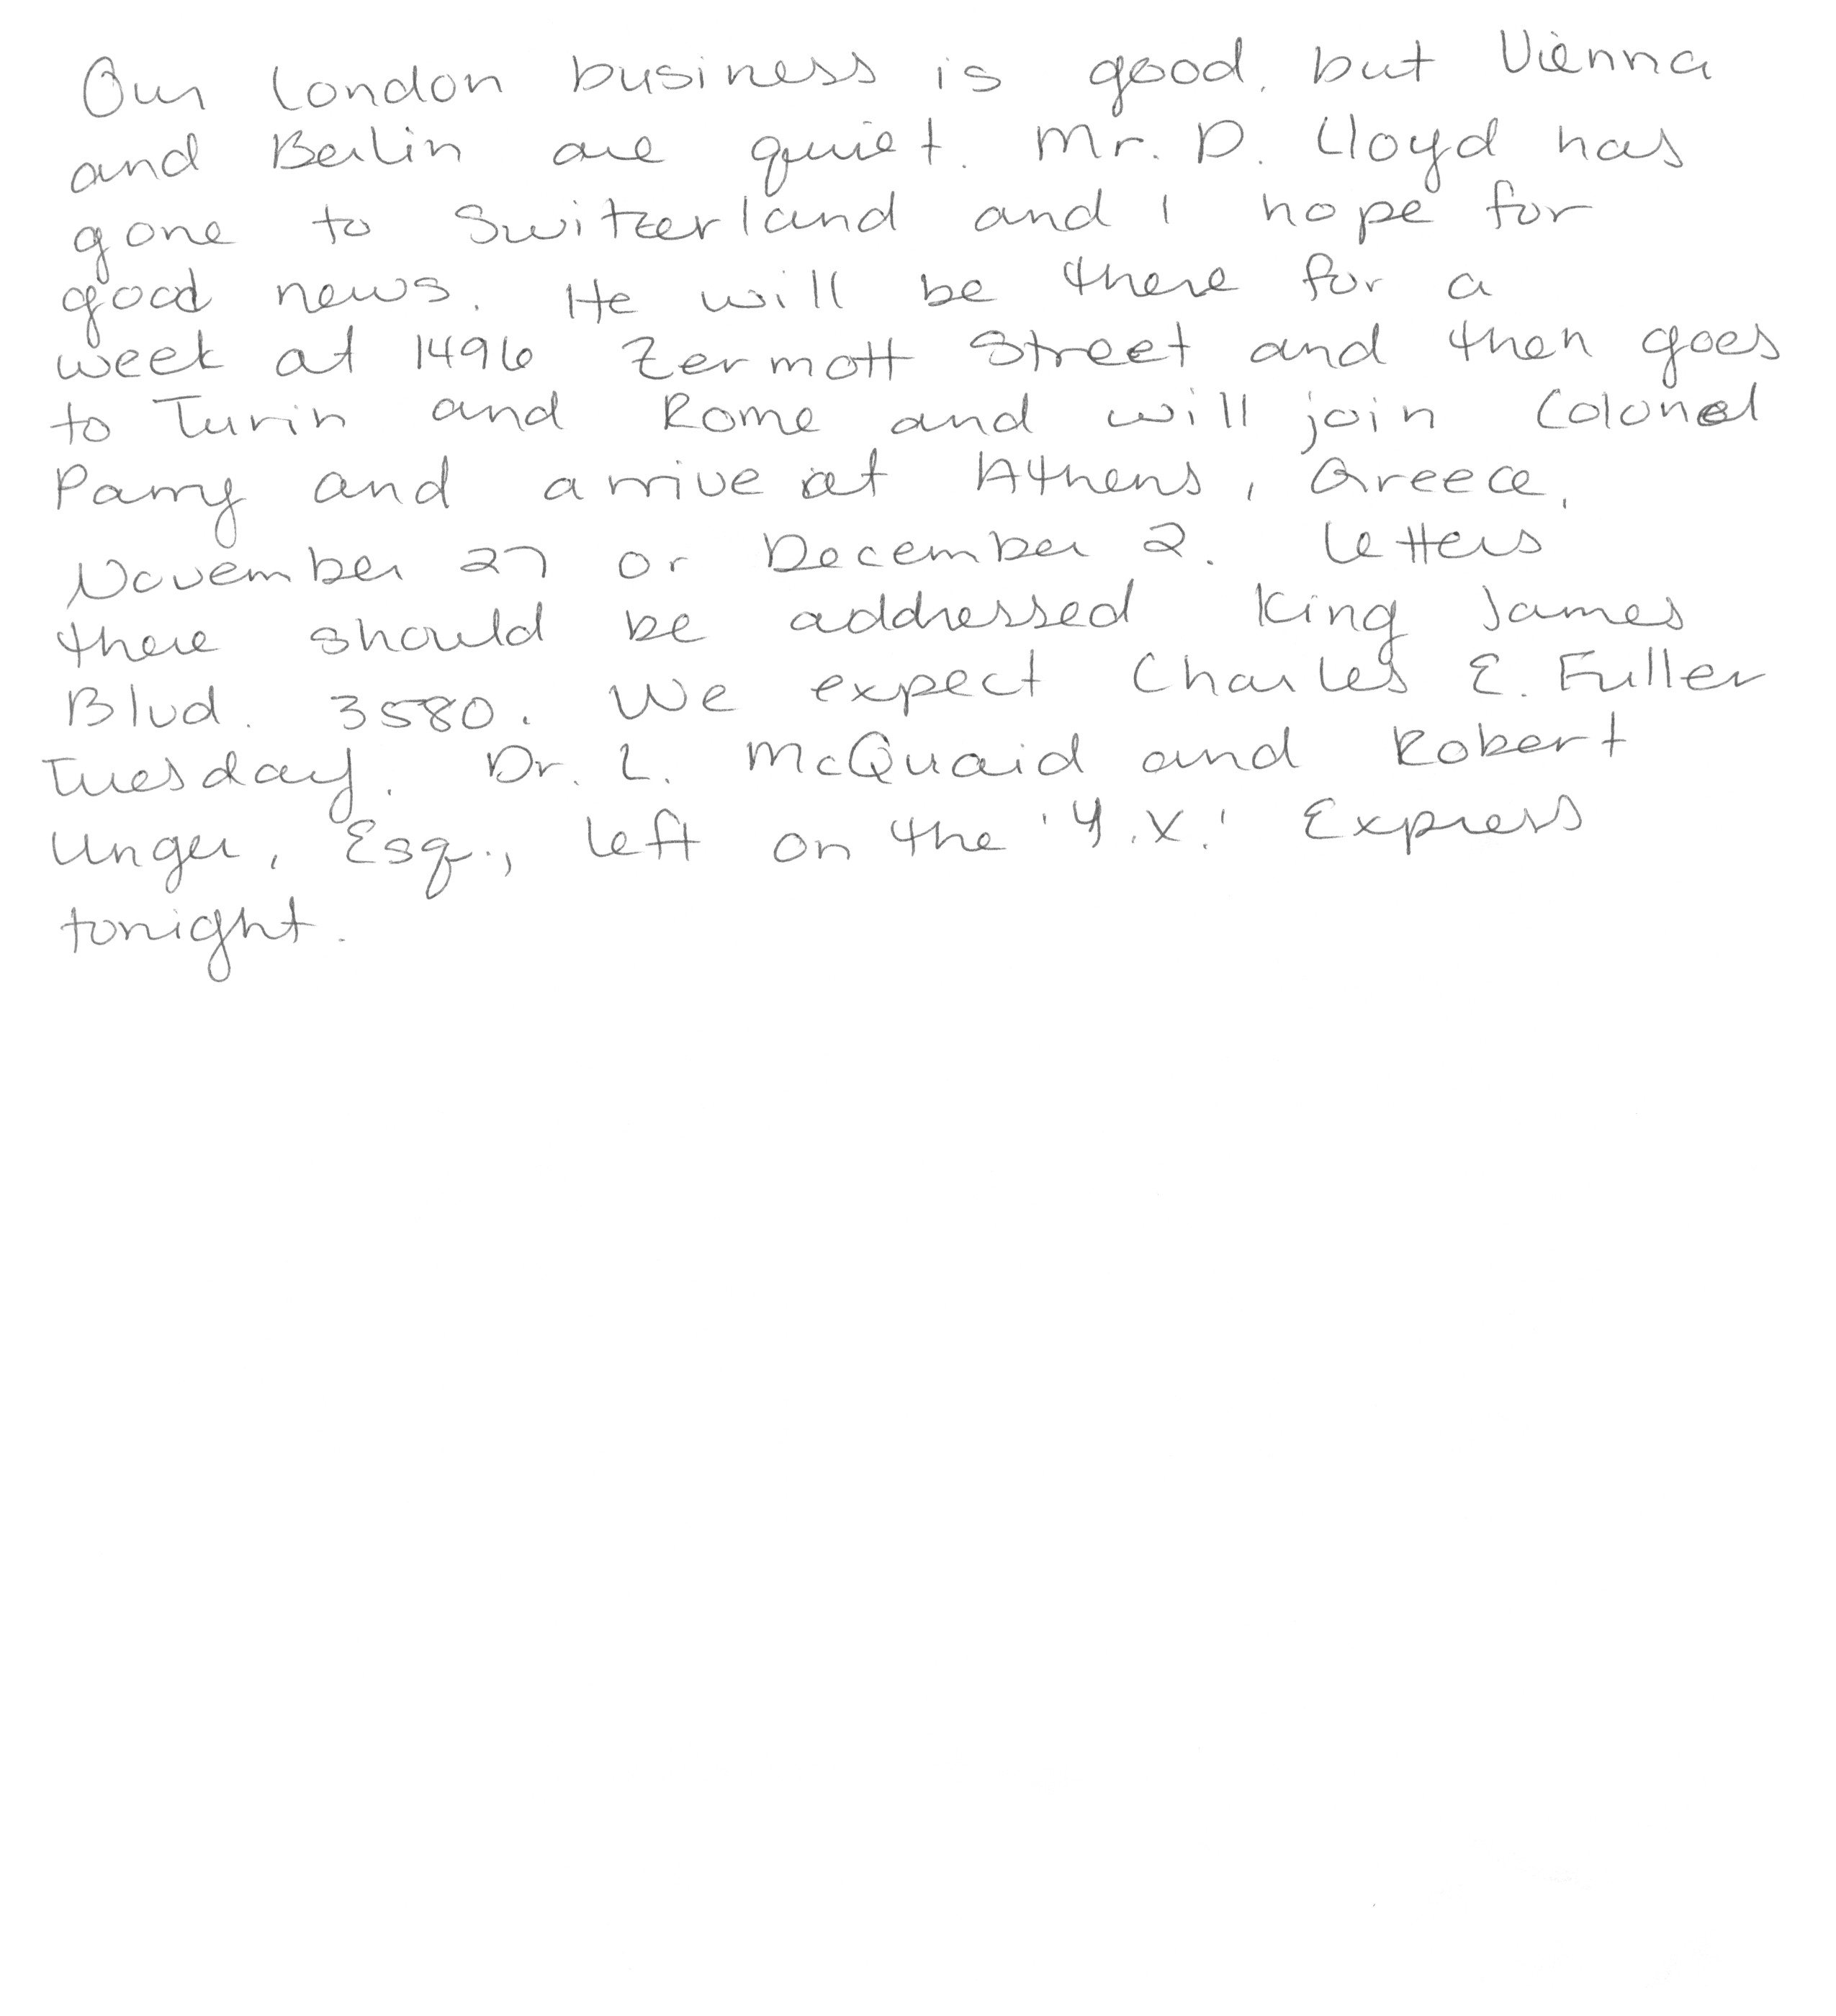 Our London business is good, but Vienna
and Berlin are quiet. Mr. D. Lloyd has
gone to Switzerland and I hope for
good news. He will be there for a
week at 1496 Zermott Street and then goes
to Turin and Rome and will join Colonel
Parry and arrive at Athens, Greece,
November 27 or December 2. Letters
there should be addressed King James
Blvd. 3580. We expect Charles E. Fuller
Tuesday. Dr. L. McQuaid and Robert
Unger, Esq., left on the 'Y.X.' Express
tonight.